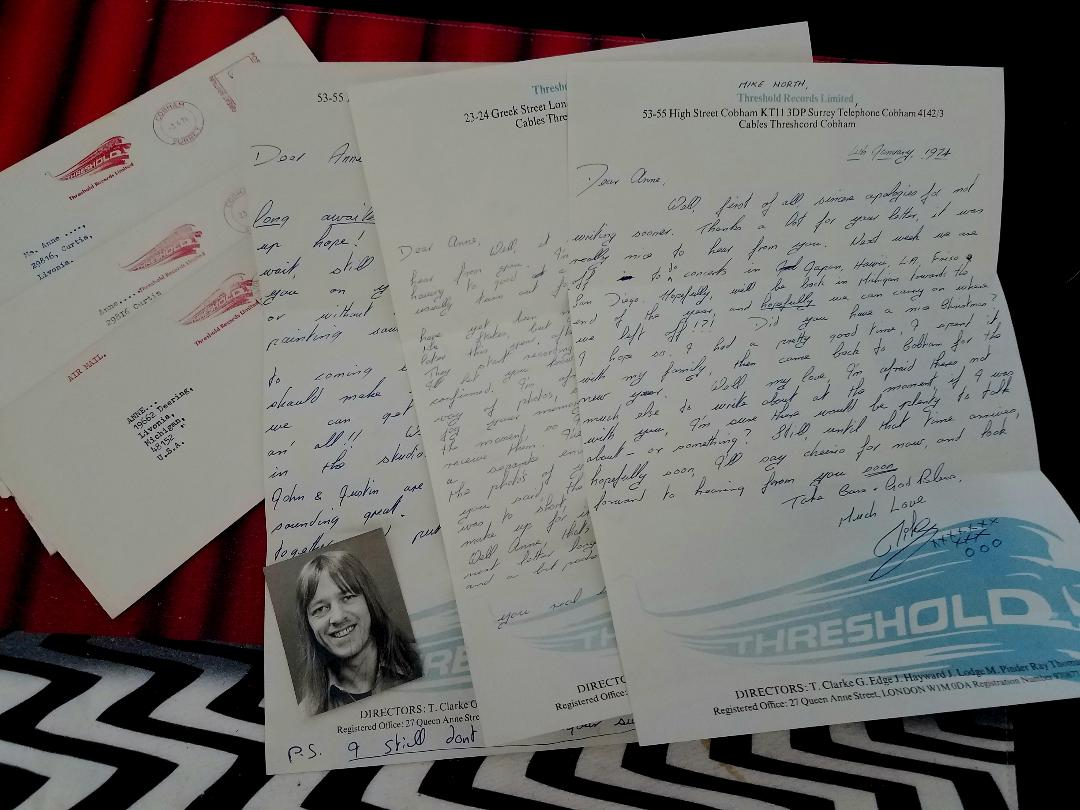 COBHAM
SURREY
THRESHOLD
Threshold Records Limited
Ms. Anne ....,
29816, Curtis,
Livonia,
THRESHOLD
Threshold Records Limited
Anne....
29816 Curtis
THRESHOLD
Threshold Records Limited
AIR MAIL.
ANNE...,
19662 Dearing,
Livonia,
Michigan,
48152
U.S.A.
53-55
Dear Anne
long awaite
up hope!
wait, still
you on
or without
painting
to coming
should make
we can get
an' all!!
in the studio
John & Justin are
sounding great.
together put
THRE
DIRECTORS: T. Clarke G
Registered Office: 27 Queen Anne Stre
P.S. I still dont your
Thresh
23-24 Greek Street Lon
Cables Thre
Dear Anne, Well, it
hear from you. I'm
to good
usually
have yet been
the States, but
later this year.
They start recording
I'll let you know
confirmed. I'm
way of photos,
the moment, so
receive them. The
a separate
the photos of
you said the
was to short,
make up for
Well Anne, that's
next letter long
and a bit
you real
TH
DIRECTO
Registered Office: 27
MIKE NORTH,
Threshold Records Limited
53-55 High Street Cobham KT11 3DP Surrey Telephone Cobham 4142/3
Cables Threshcord Cobham
4th January, 1974
Dear Anne,
Well, first of all sincere apologies for not
writing sooner. Thanks a lot for your letter, it was
really nice to hear from you. Next week we are
off to do concerts in Japan, Hawaii, LA, Frisco &
San Diego. Hopefully, we'll be back in Michigan towards the
end of the year, and hopefully we can carry on where
we left off!?!! Did you have a nice Christmas?
I hope so. I had a pretty good time, I spent it
with my family, then came back to Cobham for the
new year. Well my love, I'm afraid theres not
much else to write about at the moment, if I was
with you, I'm sure there would be plenty to talk
about - or something? Still, until that time arrives,
hopefully soon, I'll say cheerio for now, and look
forward to hearing from you soon.
Take Care - God Bless,
Much Love
Mike
THRESHOLD
DIRECTORS: T. Clarke G. Edge J. Hayward J. Lodge M. Pinder Ray Thomas
Registered Office: 27 Queen Anne Street, LONDON W1M 0DA Registration Number